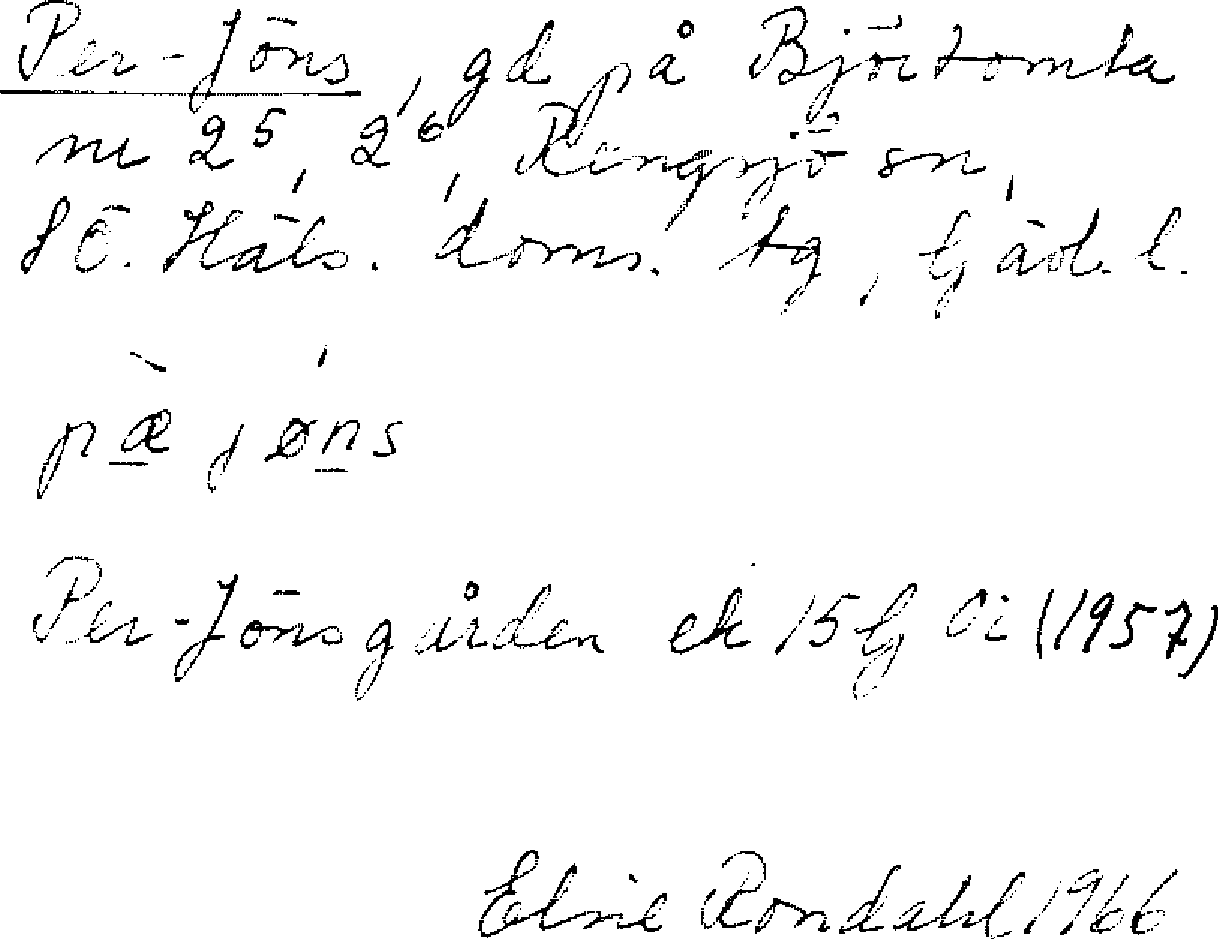 Per-Jöns, gd på Björtomta
nr 2⁵, 2⁶, Rengsjö sn,
SÖ. Häls. doms. tg, Gävl. l.
pæ̀ jǿns
Per-Jönsgården ek 15G (1957)
Elsie Rondahl 1966